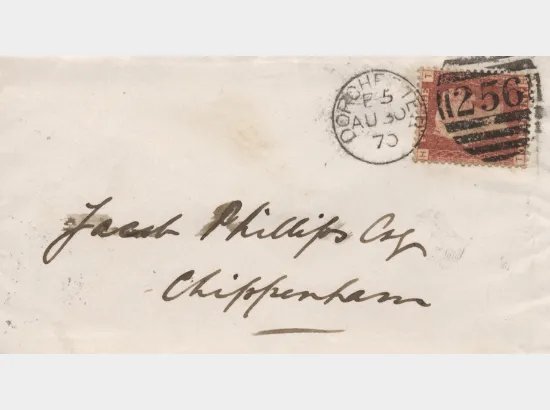 DORCHESTER
E5
AU 30
70
256
T
H
Jacob Phillips Esq
Chippenham